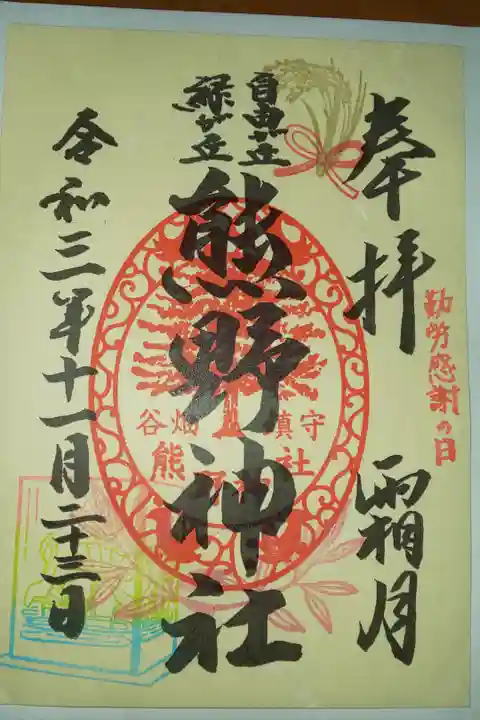 奉拝
霜月
勤労感謝の日
自由が丘
緑が丘
熊野神社
谷畑
鎮守
熊
社
令和三年十一月二十三日